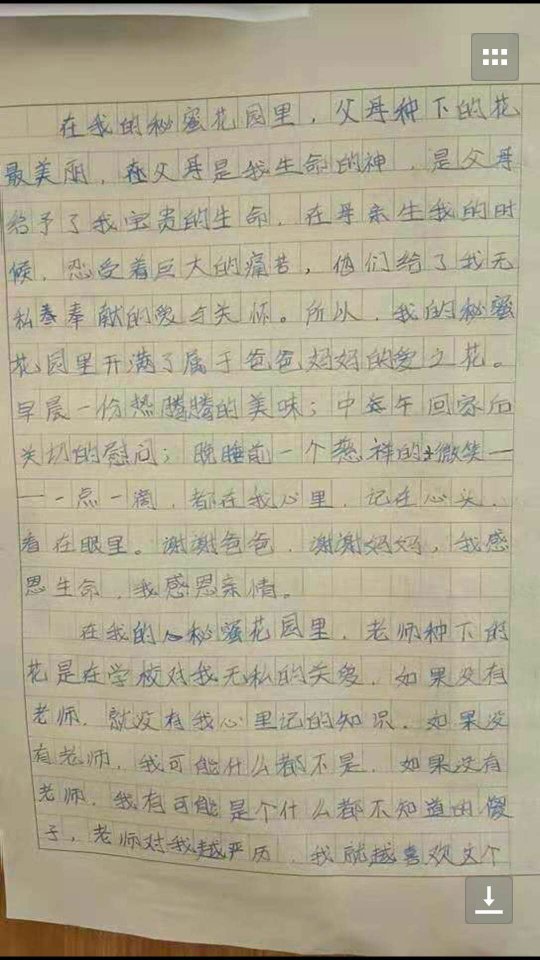 在我的秘蜜花园里，父母种下的花
最美丽，在父母是我生命的神，是父母
给予了我宝贵的生命，在母亲生我的时
候，忍受着巨大的痛苦，他们给了我无
私奉献的爱与关怀。所以，我的秘蜜
花园里开满了属于爸爸妈妈的爱之花。
早晨一份热腾腾的美味；中午回家后
关切的慰问；晚睡前一个慈祥的微笑—
—一点一滴，都在我心里，记在心头，
看在眼里。谢谢爸爸，谢谢妈妈，我感
恩生命，我感恩亲情。
在我的心秘蜜花园里，老师种下的
花是在学校对我无私的关爱，如果没有
老师，就没有我心里记的知识，如果没
有老师，我可能什么都不是，如果没有
老师，我有可能是个什么都不知道的傻
子，老师对我越严厉，我就越喜欢这个